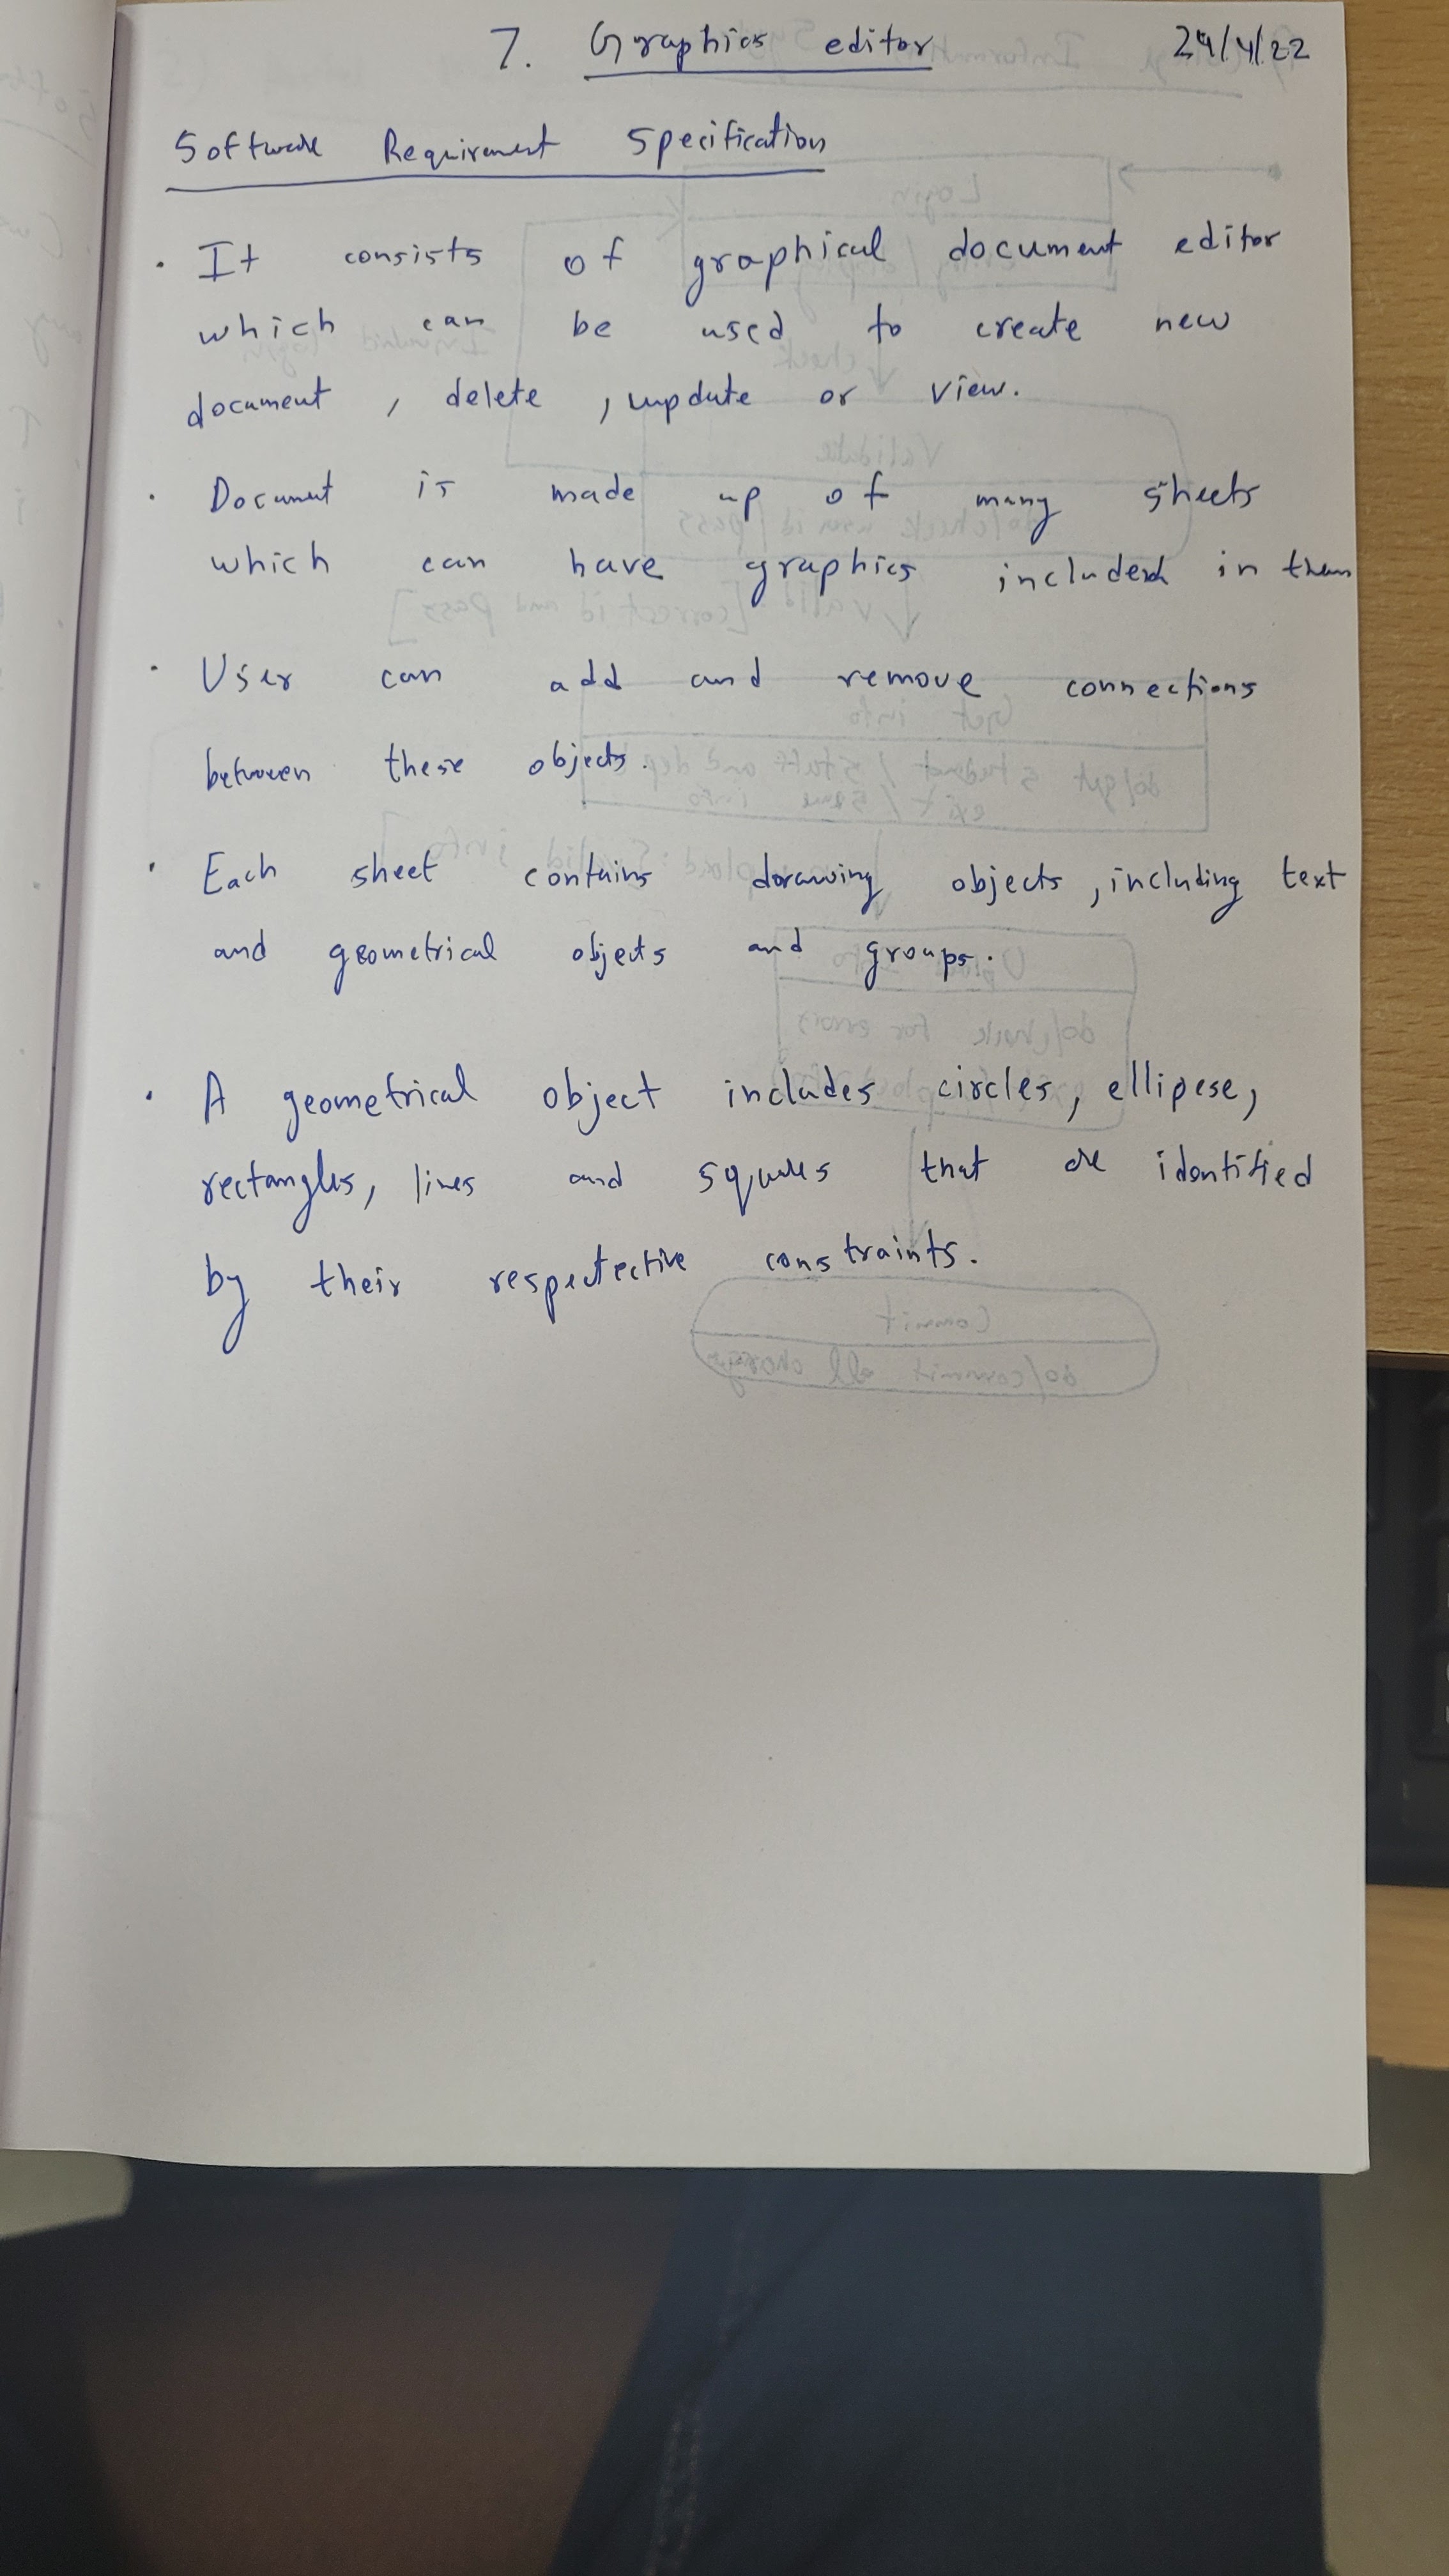 7. Graphics editor 24/4/22
Software Requirement Specification
. It consists of graphical document editor
which can be used to create new
document , delete , update or view.
. Document is made up of many sheets
which can have graphics included in them
. User can add and remove connections
between these objects.
. Each sheet contains drawing objects , including text
and geometrical objects and groups.
. A geometrical object includes circles, ellipese,
rectangles, lines and squares that are identified
by their respectective constraints.